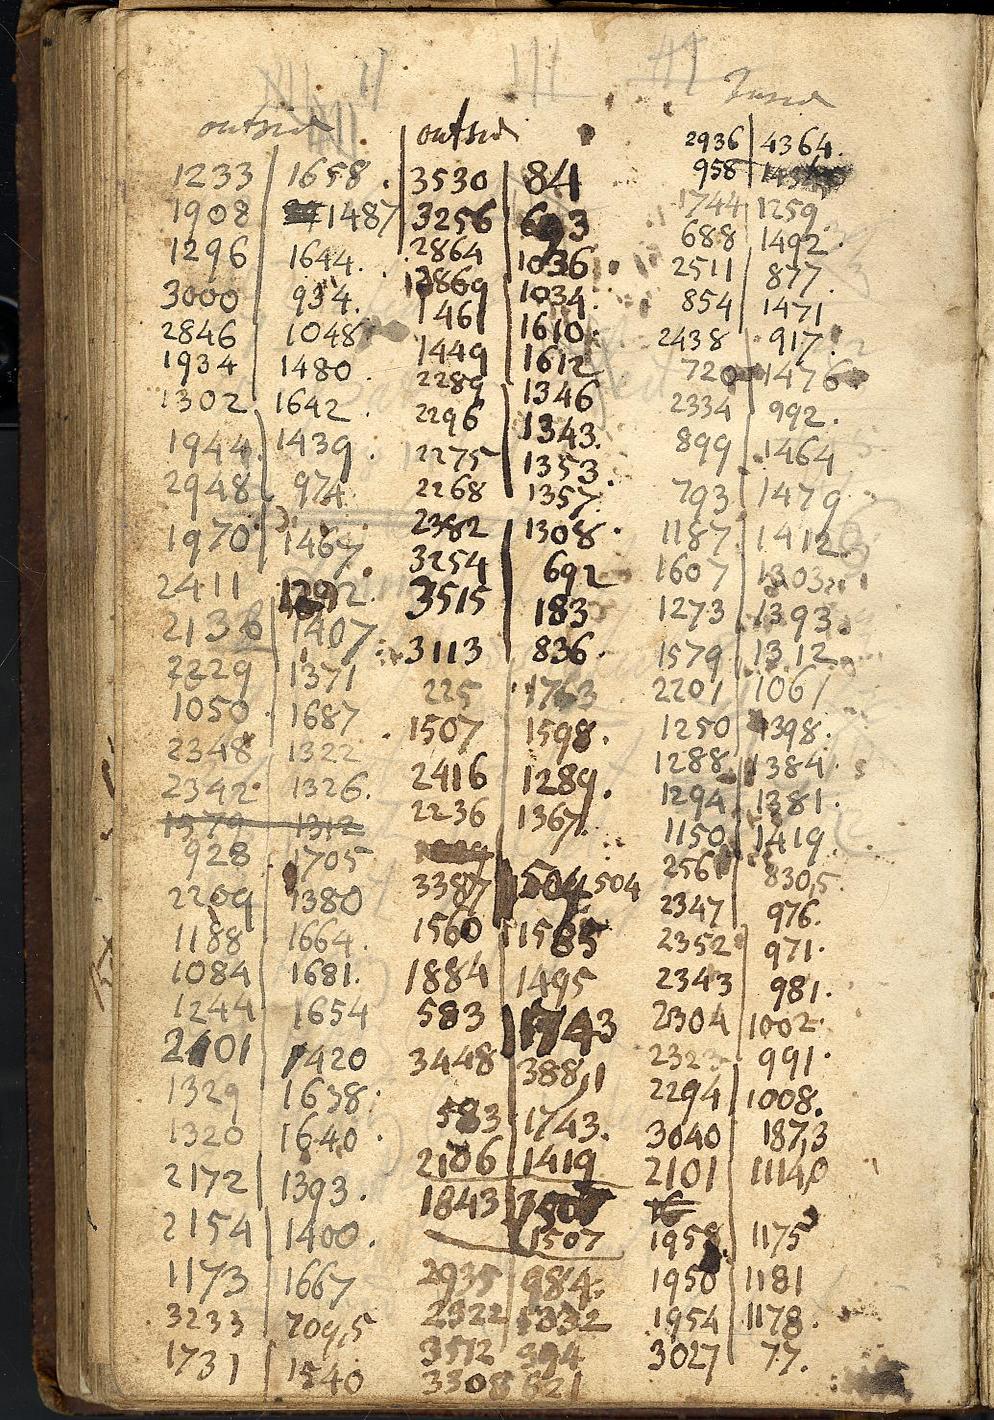 outsid
1233 1658.
1908 1487
1296 1644.
3000 934.
2846 1048
1934 1480
1302 1642
1944. 1439.
2948 974
1970 1467
2411 1292.
2136 1407
2229 1371
1050 1687
2348 1322
2342 1326.
1579 1312
928 1705
2209 1380
1188 1664.
1084 1681.
1244 1654
2101 1420
1329 1638
1320 1640.
2172 1393.
2154 1400.
1173 1667
3233 709,5
1731 1540
outsid
3530 84
3256 693
2864 1036
2869 1034
1461 1610
1449 1612
2289 1346
2296 1343.
2275 1353
2268 1357.
2382 1308.
3254 692
3515 183
3113 836.
225 1763
1507 1598.
2416 1289.
2236 1367.
3387 504 504
1560 1585
1884 1495
583 1743
3448 388,1
583 1743.
2106 1419
1843 1507
2935 984.
2322 1332
3512 394
3308 621
Insid
2936 4364.
958
1744 1259
688 1492.
2511 877.
854 1471
2438 917.
720 1476
2334 992.
899 1464
793 1479
1187 1412
1607 1303
1273 1393.
1579 1312.
2201 1067
1250 1398.
1288 1384
1294 1381.
1150 1419
256 830,5.
2347 976.
2352 971.
2343 981.
2304 1002
2323 991.
2294 1008.
3040 187,3
2101 1114,0
16
1958 1175
1950 1181
1954 1178.
3027 77.